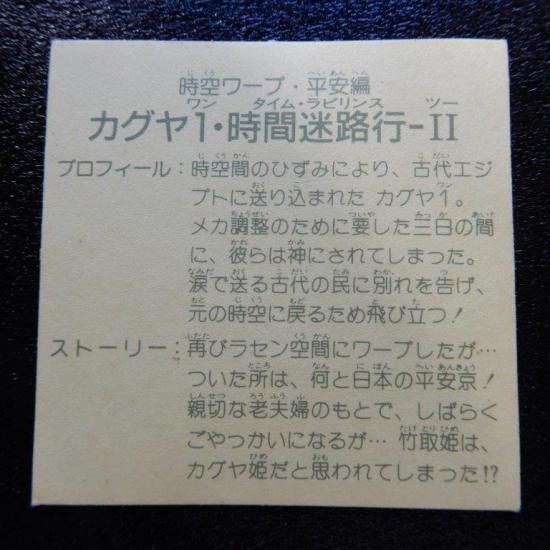 時空ワープ・平安編
カグヤ1・時間迷路行-II
プロフィール：時空間のひずみにより、古代エジ
プトに送り込まれた カグヤ1。
メカ調整のために要した三日の間
に、彼らは神にされてしまった。
涙で送る古代の民に別れを告げ、
元の時空に戻るため飛び立つ！
ストーリー：再びラセン空間にワープしたが…
ついた所は、何と日本の平安京！
親切な老夫婦のもとで、しばらく
ごやっかいになるが… 竹取姫は、
カグヤ姫だと思われてしまった!?